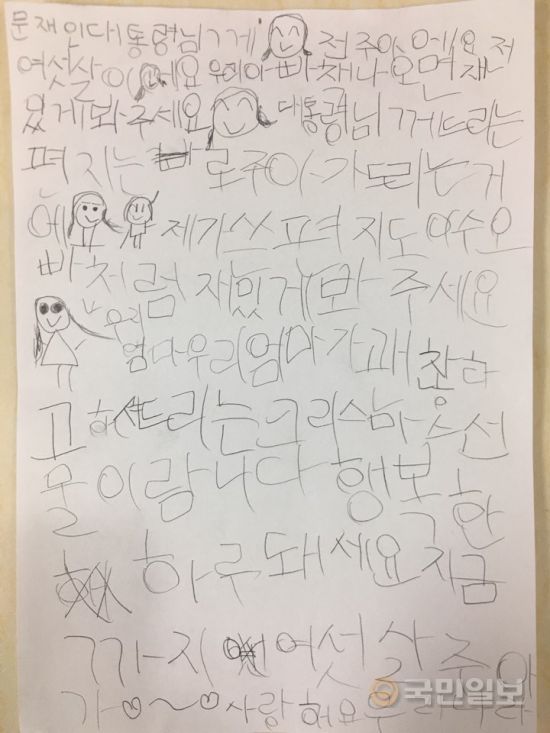 문재인대통령님ㄱ게 전 주아에요 저
여섯살이에요 우리아빠 채나오면 재
있게봐주세요 대통령님 ㄱ께드리는
편지는 로주아가드리는거
에 제가쓰 펴지도 야수오
빠처럼 재밌게봐 주세요
우리
엄마우리엄마가괘찮아
고 하셔드리는크리스마스선
물이람니다 행복한
하루돼세요 지금
ㄱ가지 여섯살주아
가♡~♡사랑해요
국민일보